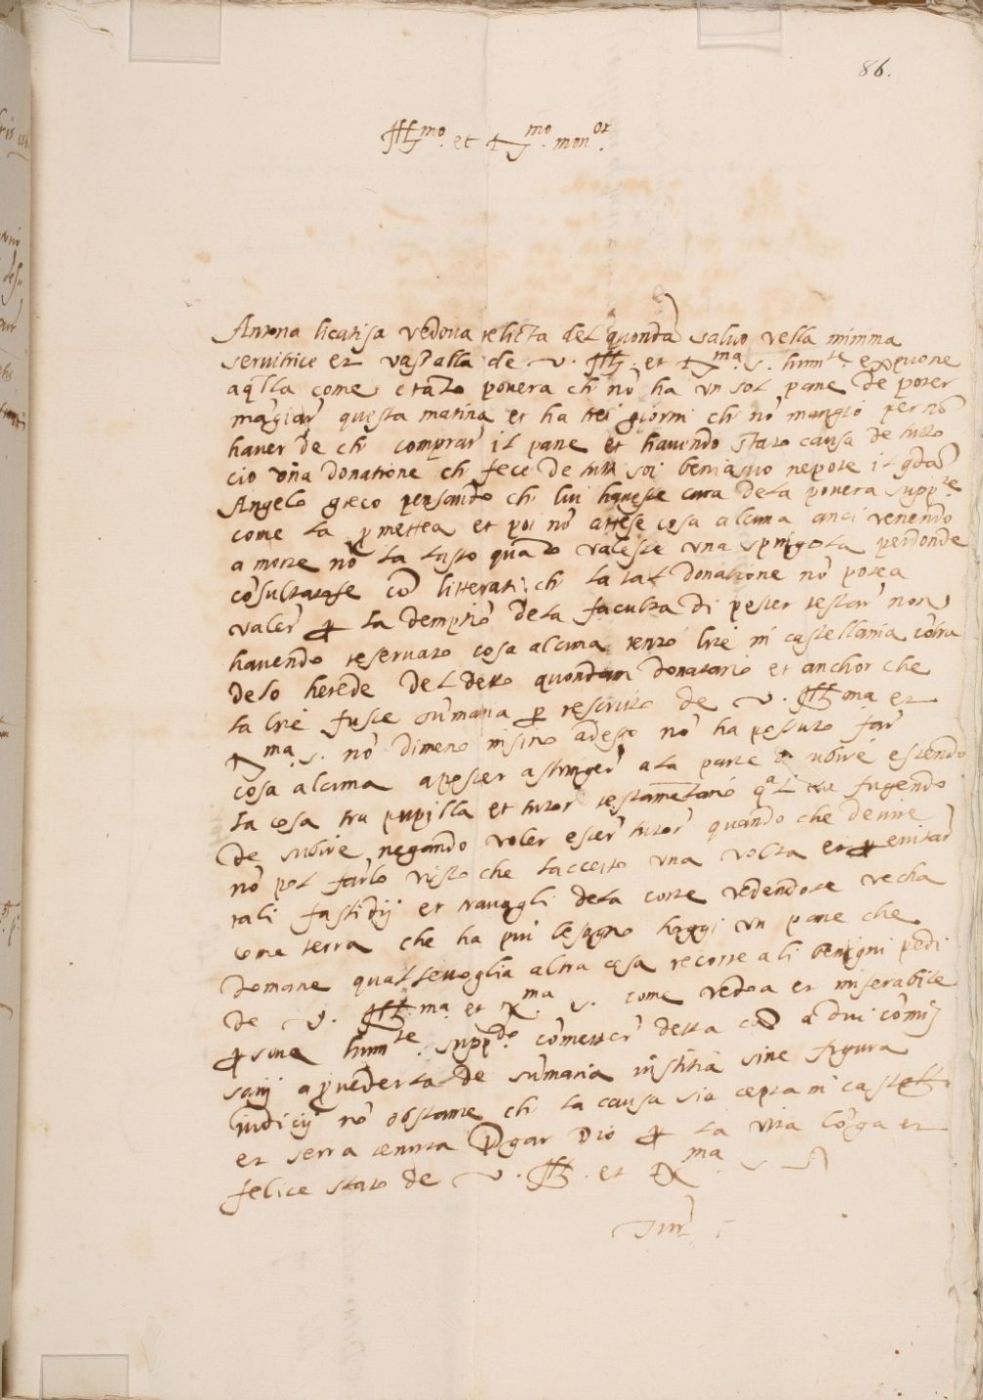 86.
Ill.mo et R.mo mon.or
Antona licatisa vedoua relicta del quonda salvo vella minima
seruitrice et vassalla de v. Ill. et R.ma s. hum.te expuone
a q̃lla come e tãto pouera ch' nõ ha un sol pane de poter
mãgiar questa matina et ha trei giorni ch' nõ mangiò per nõ
haver de ch' comprar il pane et hauendo stato causa de tutto
cio vña donatione ch' fece de tutti soi beni a suo nepote il q̃dã
Angelo greco pensando ch' lui hauesse cura dela pouera supp.te
come la ꝓmettea et poi nõ attese cosa alcuna anci venendo
a morte nõ la lasso quãto valesse una spingola perdonde
cõsultatase cõ litterati ch' la tal donatione nõ potea
valer ꝑ la demptiõ dela faculta di poter testar non
havendo reservato cosa alcuna tentò lite in castellania cõtra
delo herede del detto quondam donatario et anchor che
la lite fusse sũmaria ꝑ rescritto de v. Ill.ma et
R.ma s. nõ dimeno insino adesso nõ ha possuto far
cosa alcuna a poter astringer ala parte a subire essendo
la cosa tra pupilla et tutor testamẽtario q.al va fugendo
de subire negando voler esser tutor quando che deuire
nõ pol farlo visto che laccetto una volta et ꝑ euitar
tali fastidij et travagli dela corte vedendose vechia
come terra che ha piu besogno haggi un pane che
domane qual se voglia altra cosa recorre ali benigni pedi
de v. Ill.ma et R.ma s. come vedoa et miserabile
ꝑsona hum.te supp.do cõmetter detta cã a dui cõmis
sarij a ꝓuederla de sũmaria iustitia sine figura
iudicij nõ obstante ch' la causa sia cepta in castell.
et serra tenuta ꝓgar Dio ꝑ la vita lõga et
felice stato de v. Ill. et R.ma s.